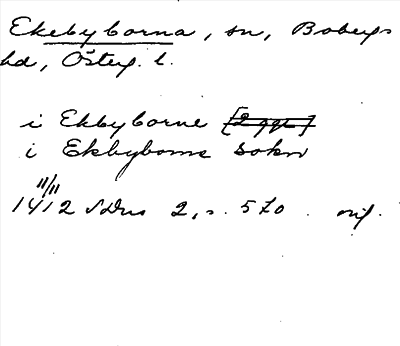 Ekebyborna, sn, Bobergs
hd, Österg. l.
i Ekbyborne [2 ggr]
i Ekbyborne sokn
11/11
1412 SDns 2, s. 570. orig.